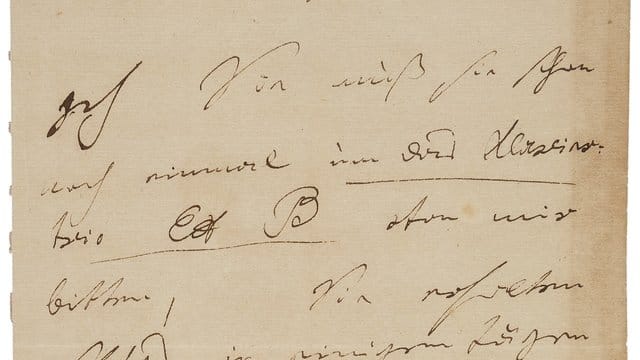 Ich muß sie schon
noch einmal um das Klavier-
trio B von mir
bitten, Sie erhalten
in einigen Tägen